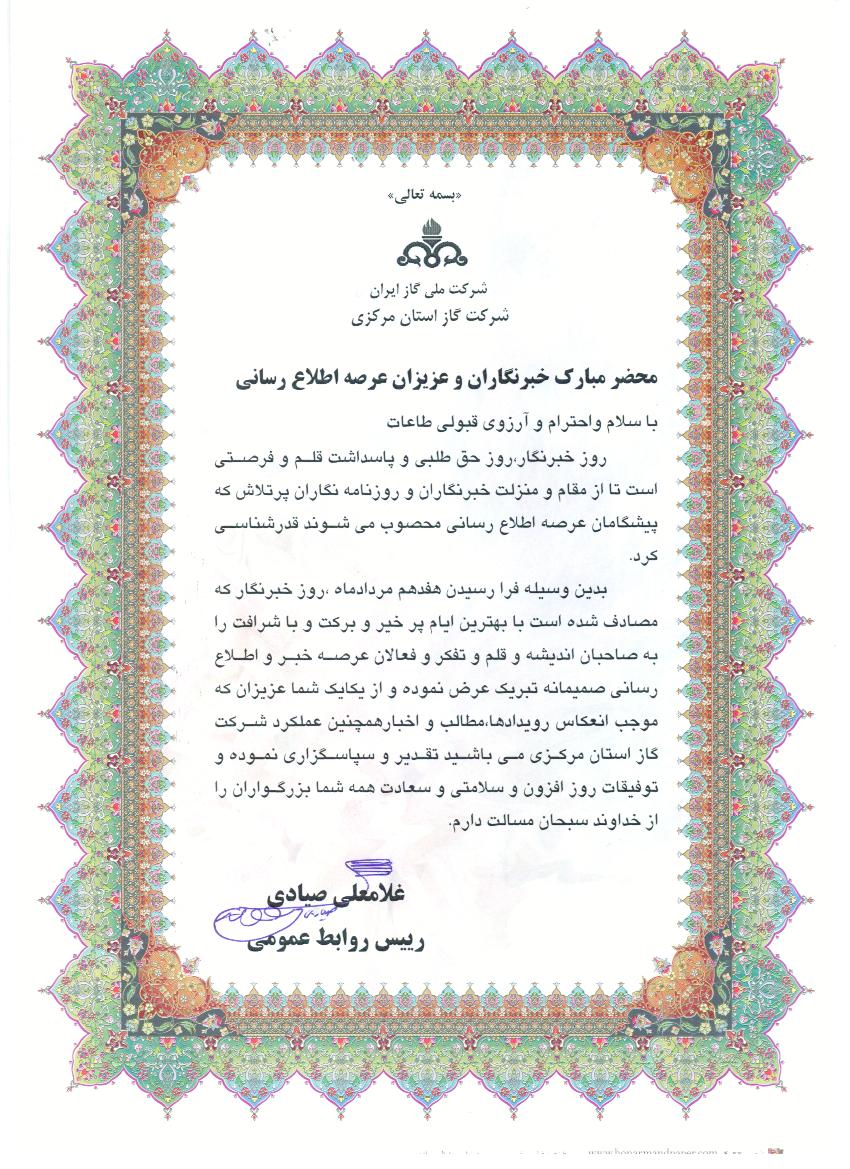 «بسمه تعالی»
شرکت ملی گاز ایران
شرکت گاز استان مرکزی
محضر مبارک خبرنگاران و عزیزان عرصه اطلاع رسانی
با سلام واحترام و آرزوی قبولی طاعات
روز خبرنگار،روز حق طلبی و پاسداشت قلم و فرصتی
است تا از مقام و منزلت خبرنگاران و روزنامه نگاران پرتلاش که
پیشگامان عرصه اطلاع رسانی محصوب می شوند قدرشناسی
کرد.
بدین وسیله فرا رسیدن هفدهم مردادماه ،روز خبرنگار که
مصادف شده است با بهترین ایام پر خیر و برکت و با شرافت را
به صاحبان اندیشه و قلم و تفکر و فعالان عرصه خبر و اطلاع
رسانی صمیمانه تبریک عرض نموده و از یکایک شما عزیزان که
موجب انعکاس رویدادها،مطالب و اخبارهمچنین عملکرد شرکت
گاز استان مرکزی می باشید تقدیر و سپاسگزاری نموده و
توفیقات روز افزون و سلامتی و سعادت همه شما بزرگواران را
از خداوند سبحان مسالت دارم.
غلامعلی صیادی
رییس روابط عمومی
www.honarmandpaper.com